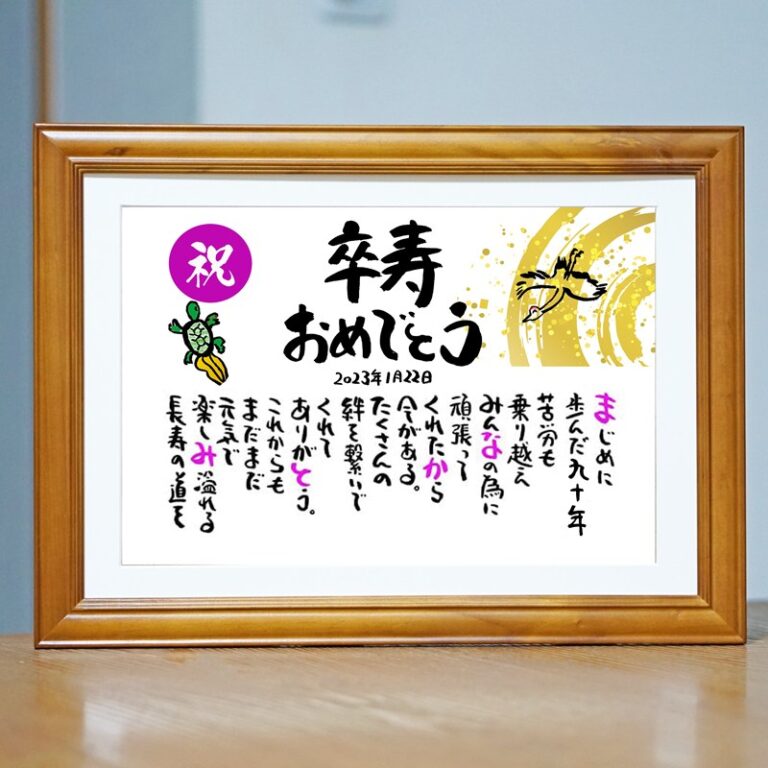 祝
卒寿
おめでとう
2023年1月22日
まじめに
歩んだ九十年
苦労も
乗り越え
みんなの為に
頑張って
くれたから
今がある。
たくさんの
絆を繋いで
くれて
ありがとう。
これからも
まだまだ
元気で
楽しみ溢れる
長寿の道を